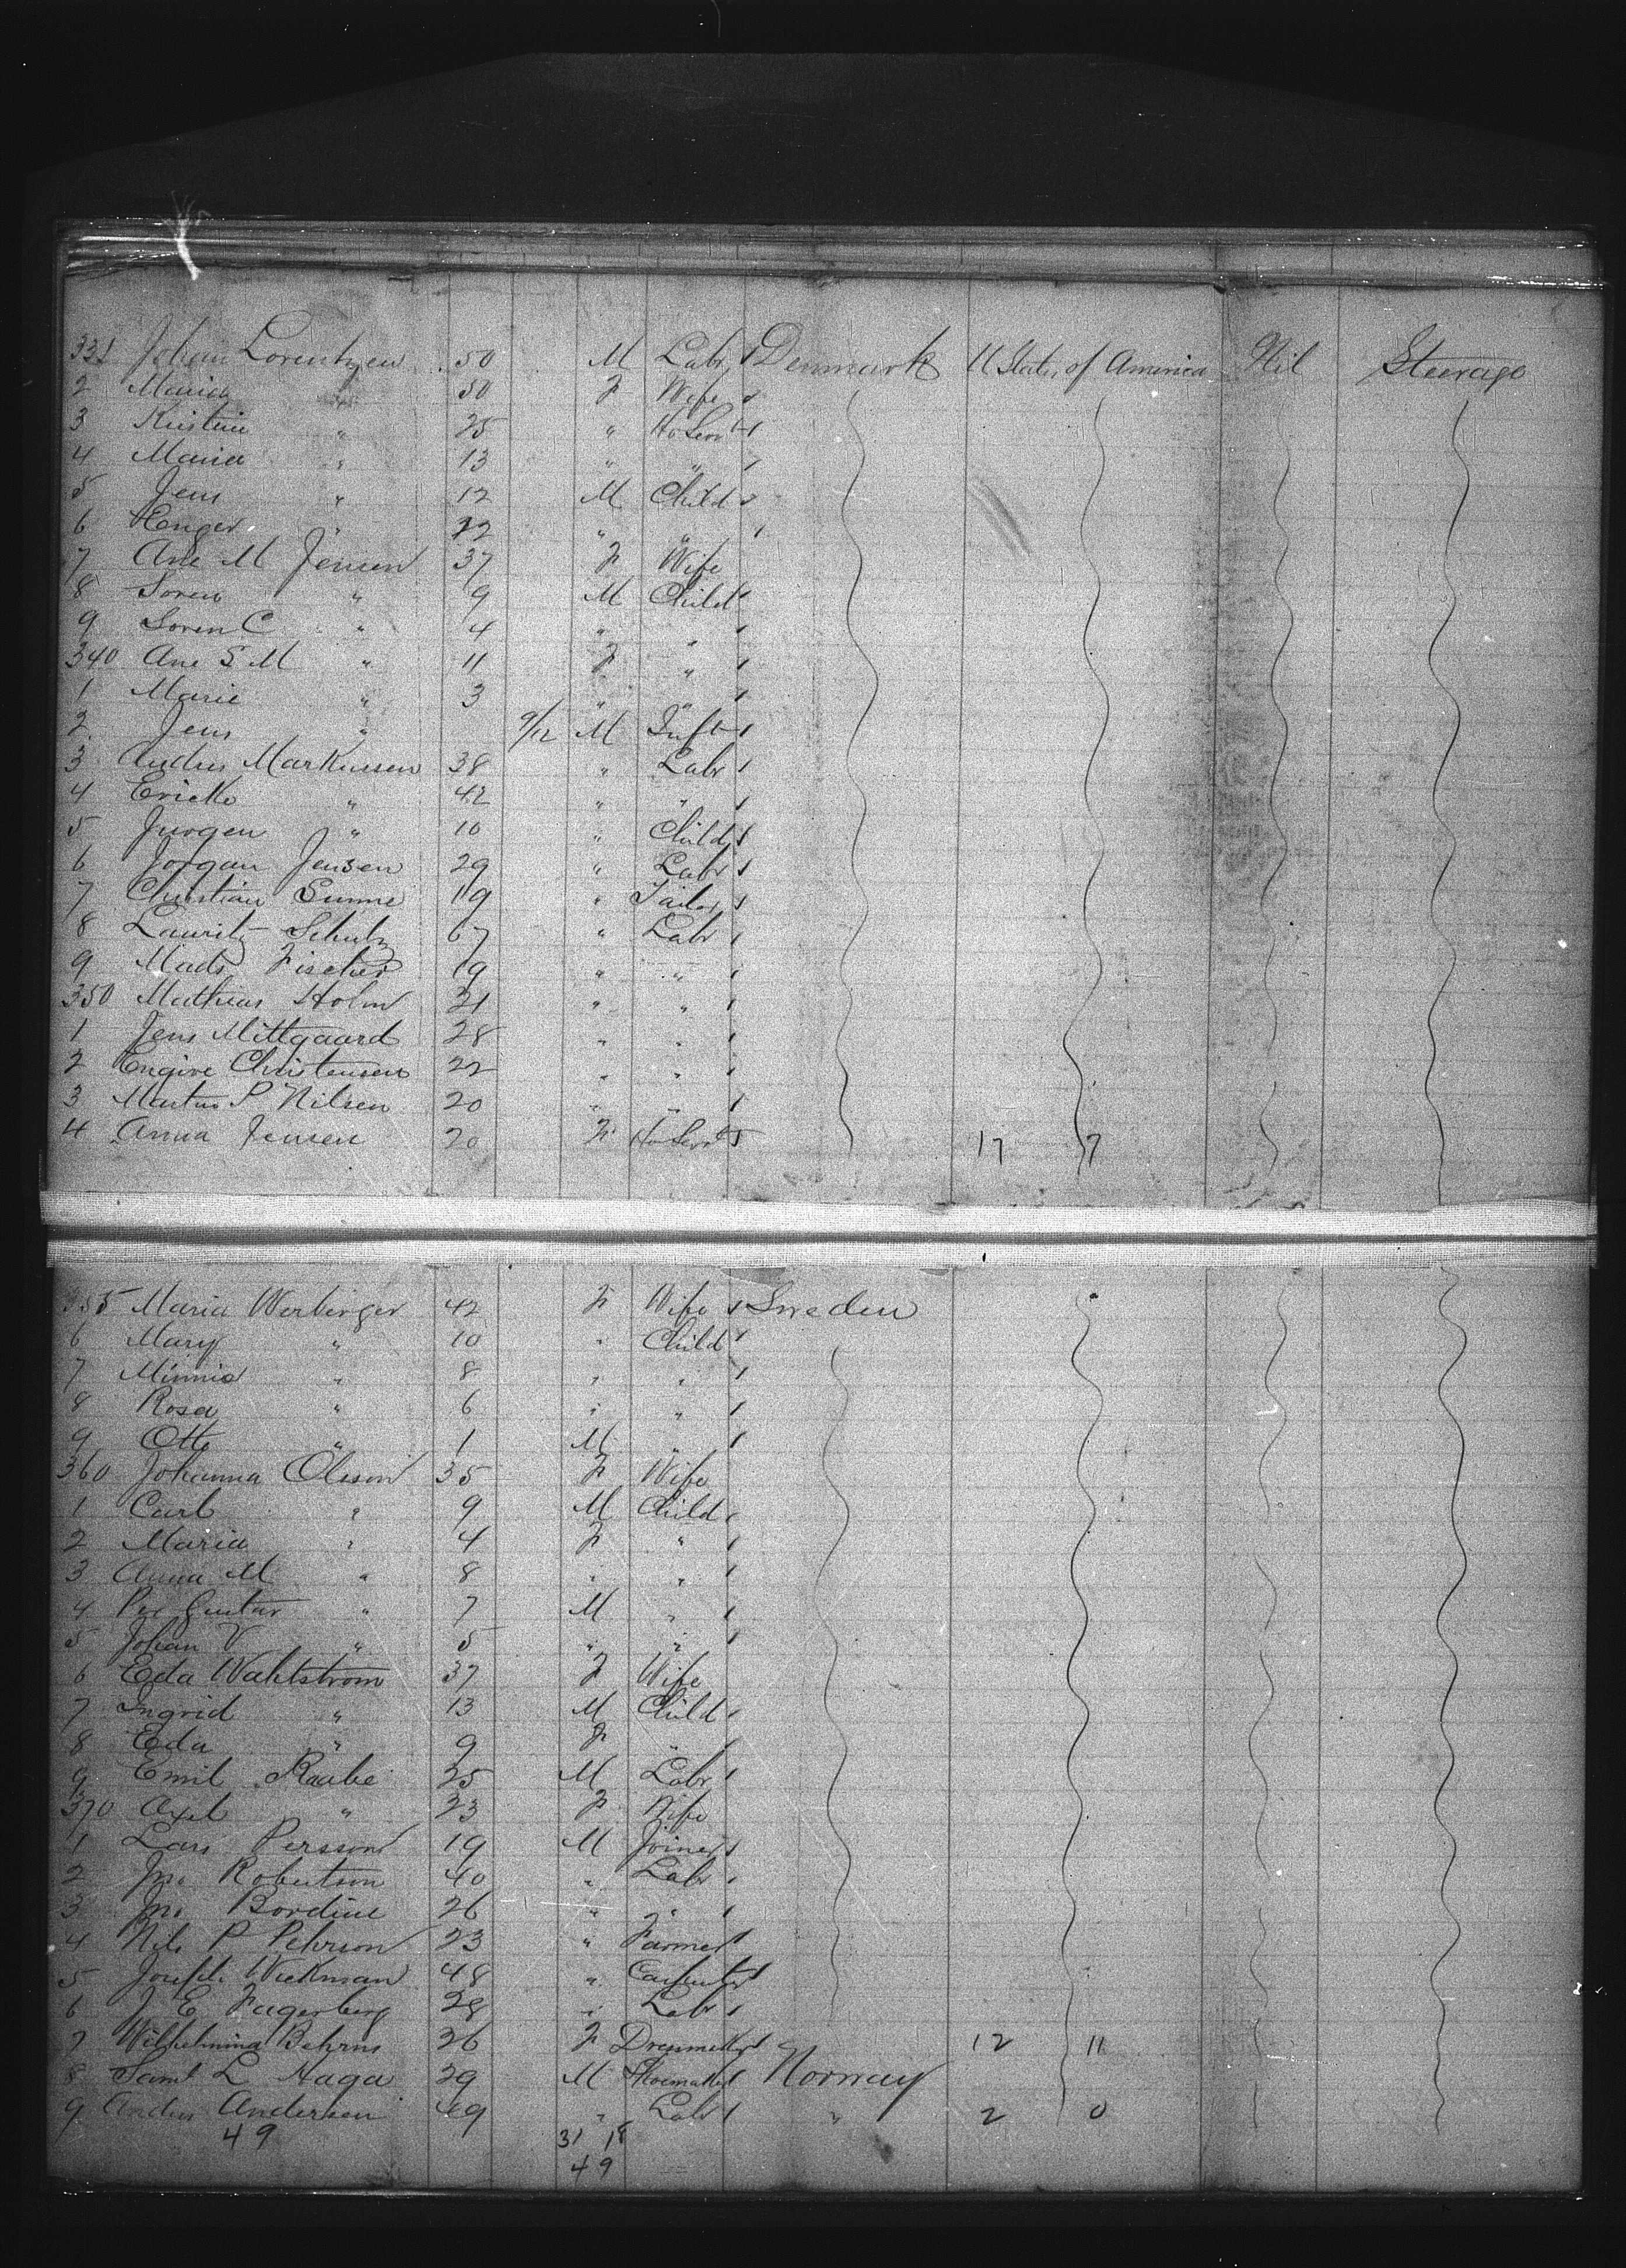 331 Johan Lorentzen 50 M Labr Denmark U States of America Nil Steerage
2 Maria " 50 F Wife
3 Kristine " 25 " Ho Servt
4 Maria " 13 " "
5 Jens " 12 M Child
6 " " "
7 Ane M Jensen 37 F Wife
8 Soren " 9 M Child
9 Soren C " 4 " "
340 Ane S M " 11 F "
1 Marie " 3 " "
2 Jens " 9/12 M Inft
3 Andres Markussen 38 " Labr
4 " 42 " "
5 Jurgen " 10 " Child
6 Jorgan Jensen 29 " Labr
7 Christian 19 " Tailor
8 Lauritz Schulz 67 " Labr
9 Mads Fischer 19 " "
350 Mathias Holm 21 " "
1 Jens Mittgaard 28 " "
2 Christensen 22 " "
3 P Nilsen 20 " "
4 Anna Jensen 20 F Ho Servt 17 7
355 Maria Werberger 42 F Wife Sweden
6 Mary " 10 " Child
7 Minnie " 8 " "
8 Rosa " 6 " "
9 Otto " 1 M "
360 Johanna Olsson 35 F Wife
1 Carl " 9 M Child
2 Maria " 4 F "
3 Anna M " 8 " "
4 Per Gustav " 7 M "
5 Johan V " 5 " "
6 Eda Wahlstrom 37 F Wife
7 Ingrid " 13 M Child
8 Eda " 9 F "
9 Emil Raabe 25 M Labr
370 Axel " 23 F Wife
1 Lars Persson 19 M Joiner
2 Jno Robertson 40 " Labr
3 Jno Bordine 26 " "
4 Nils P Pehrson 23 " Farmer
5 Joseph Wickman 48 " Carpenter
6 J E Fagerberg 28 " Labr
7 Wilhelmina Behrns 26 F Dressmaker 12 11
8 Saml L Haga 29 M Shoemaker Norway
9 Andrs Andersen 49 " Labr " 2 0
49 31 18
49